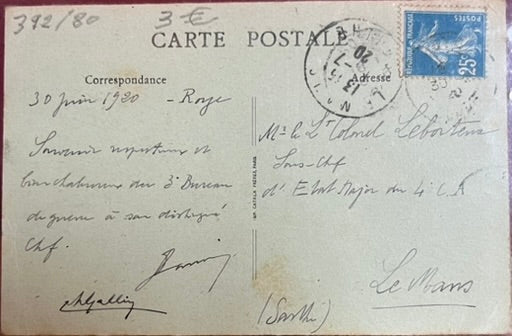 392/80
3 €
CARTE POSTALE
Correspondance
Adresse
POSTES
25c
13
7
20
30 juin 1920 - Roye
Souvenir respectueux et
bien chaleureux du 3e Bureau
de guerre à son distingué
Chef.
Mr le Lt Colonel
Sous-Chef
d'Etat Major du 4e C.A
Le Mans
(Sarthe)
IMP. CATALA FRÈRES, PARIS